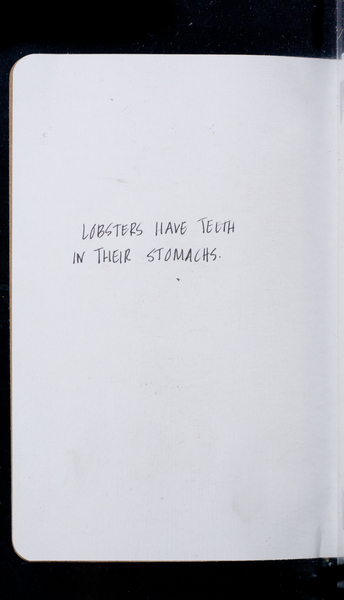 LOBSTERS HAVE TEETH
IN THEIR STOMACHS.